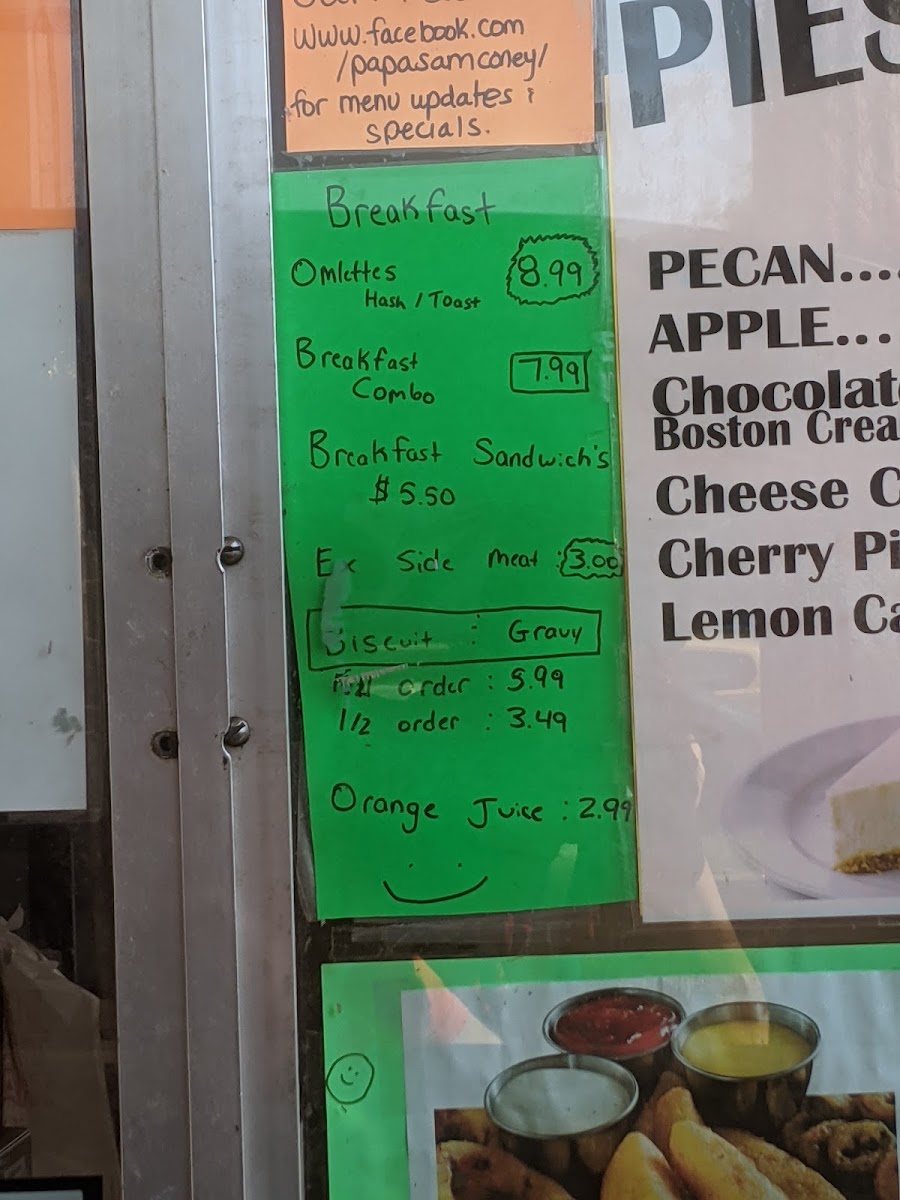 www.facebook.com
/papasamconey/
for menu updates &
specials.
Breakfast
Omlettes 8.99
Hash / Toast
Breakfast
Combo 7.99
Breakfast Sandwich's
$ 5.50
Ex Side meat : 3.00
Biscuit : Gravy
Full order : 5.99
1/2 order : 3.49
Orange Juice : 2.99
PIES
PECAN....
APPLE...
Chocolat
Boston Crea
Cheese C
Cherry Pi
Lemon Ca